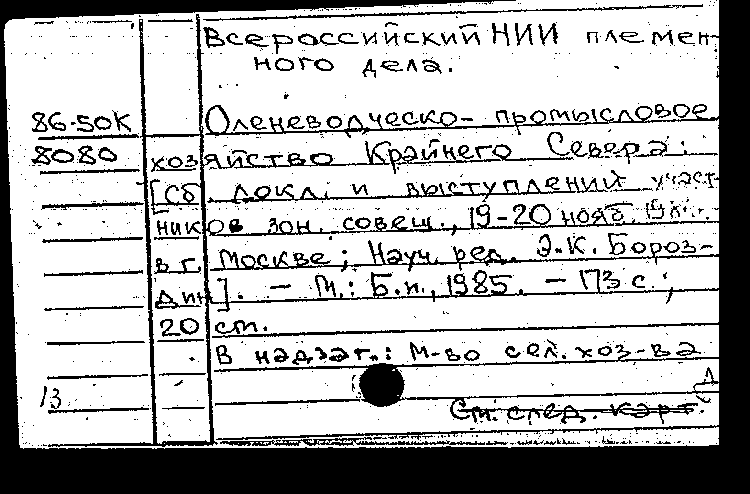 Всероссийский НИИ племен-
ного дела.
86-50К Оленеводческо-промысловое
8080 хозяйство Крайнего Севера:
[Сб. докл. и выступлений участ-
ников зон. совещ., 19-20 нояб.
в г. Москве; Науч. ред. Э.К. Бороз-
дин]. - М.: Б.и., 1985. - 173 с.;
20 см.
В надзаг.: М-во сел. хоз-ва
13
См. след. карт.